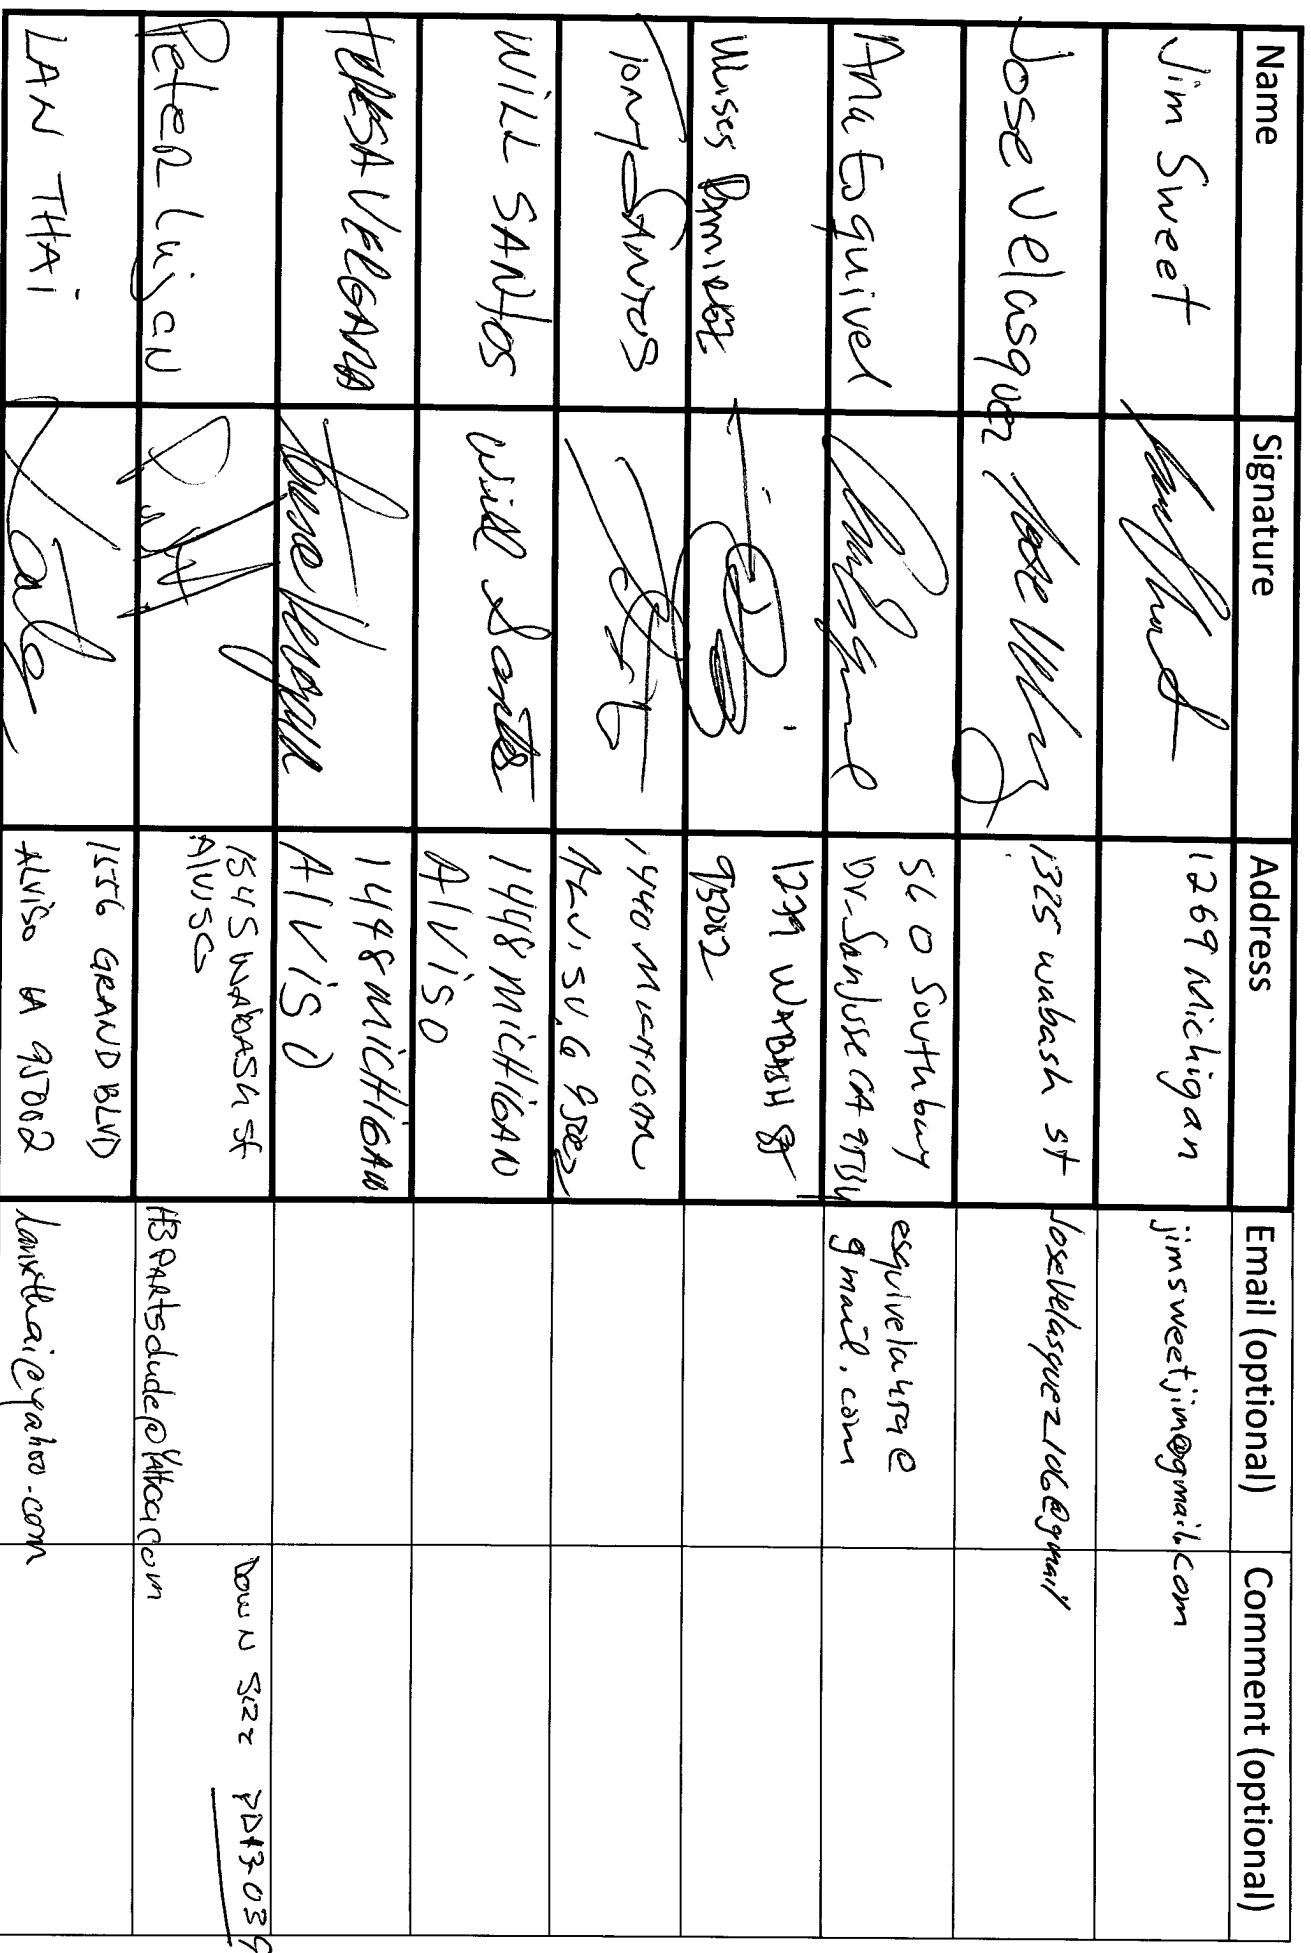 Name Signature Address Email (optional) Comment (optional)
Jim Sweet 1269 Michigan jimsweetjim@gmail.com
Jose Velasquez 1325 wabash st JoseVelasquez106@gmail
Ana Esquivel 560 Southbay
Dr. San Jose CA
gmail.com
Ulises 1279 WABASH St
95002
Tony Santos 1440 Michigan
WILL SANTOS Will Santos 1448 MICHIGAN
Alviso
TERESA VERGARA 1448 MICHIGAN
Alviso
Peter Lujan 1545 WABASH St
Alviso
Down Size PD13-039
LAN THAI 1556 GRAND BLVD
ALVISO CA 95002
lanxthai@yahoo.com